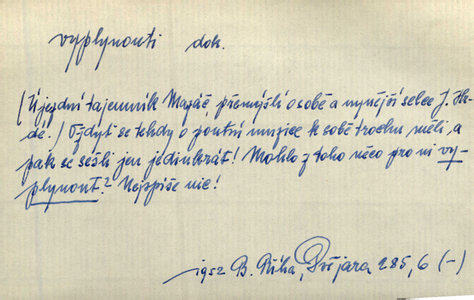 vyplynouti dok.
(Újezdní tajemník Mazáč, přemýšlí o sobě a nynější selce J.
Vždyť se tehdy o poutní muzice k sobě trochu měli, a
pak se sešli jen jedinkrát! Mohlo z toho něco pro ni vy-
plynout? Nejspíše nic!
1952 B. Říha, Dvě jara 285, 6 (-)